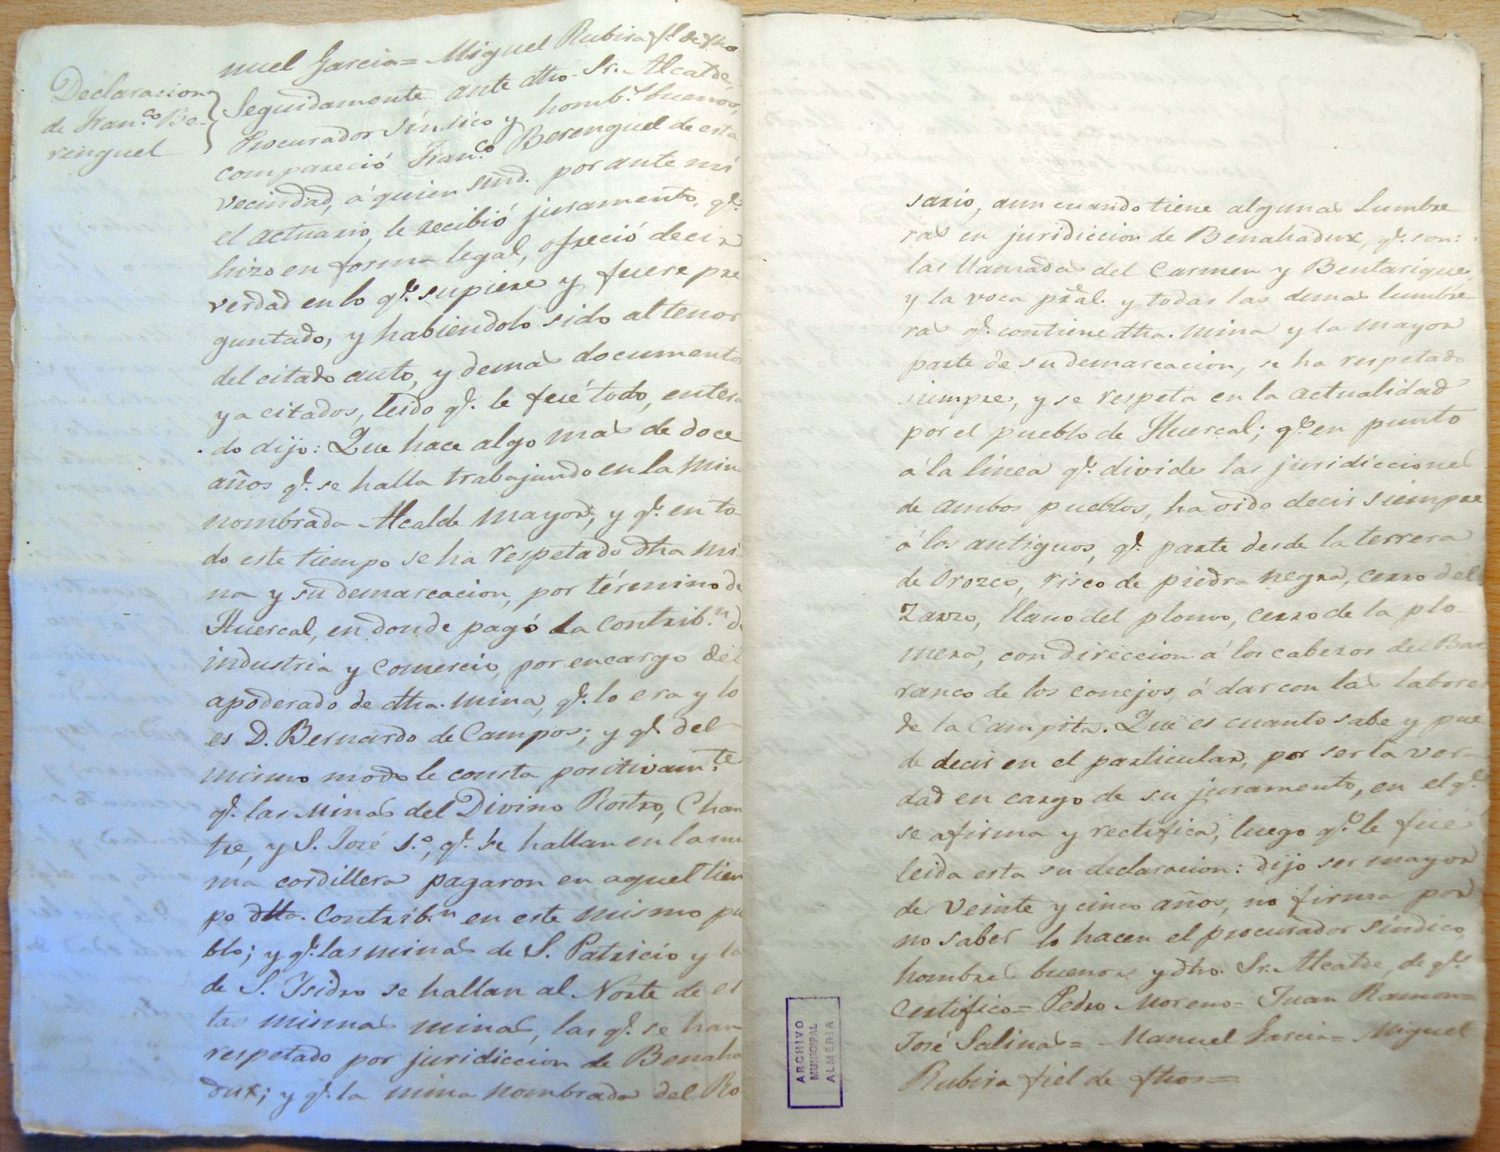 nuel Garcia = Miguel Rubira fl. de fhos
Declaracion
de Franco. Be-
renguel
Seguidamente ante dho. Sr. Alcalde,
Procurador síndico y homb.s buenos,
compareció Franco. Berenguel de esta
vecindad, á quien smd. por ante mi
el actuario, le recibió juramento, q.e
hizo en forma legal, ofreció decir
verdad en lo q.e supiere y fuere pre
guntado, y habiendolo sido al tenor
del citado auto, y demas documentos
ya citados, leido q.e le fué todo, entera
do dijo: Que hace algo mas de doce
años q.e se halla trabajando en la min
nombrada Alcalde mayor, y q.e en to
do este tiempo se ha respetado dha mi
na y su demarcacion, por término de
Huercal, en donde pagó la contrib.n de
industria y comercio, por encargo del
apoderado de dha. mina, q.e lo era y lo
es D. Bernardo de Campos; y q.e del
mismo modo le consta positivam.te
q.e las minas del Divino Rostro, Chan
tre, y S. José 1.o, q.e se hallan en la mis
ma cordillera pagaron en aquel tiem
po dha. contrib.n en este mismo pu
blo; y q.e las minas de S. Patricio y la
de S. Isidro se hallan al Norte de es
tas mismas minas, las q.e se han
respetado por juridiccion de Benaha
dux; y q.e la mina nombrada del Ro
sario, aun cuando tiene algunas Lumbre
ras en juridiccion de Benahadux, q.e son:
las llamadas del Carmen y Bentarique,
y la voca pral. y todas las demas lumbre
ras q.e contiene dha. mina y la mayor
parte de su demarcacion, se ha respetado
siempre, y se respeta en la actualidad
por el pueblo de Huercal; q.e en punto
á la línea q.e divide las juridicciones
de ambos pueblos, ha oido decir siempre
á los antiguos, q.e parte desde la terrera
de Orozco, risco de piedra negra, cerro del
Zarzo, llano del plomo, cerro de la plo-
mera, con direccion á los cabezos del Bar
ranco de los conejos, á dar con las labores
de la Campita. Que es cuanto sabe y pue
de decir en el particular, por ser la ver-
dad en cargo de su juramento, en el q.e
se afirma y rectifica, luego q.e le fue
leida esta su declaracion: dijo ser mayor
de veinte y cinco años, no firma por
no saber lo hacen el procurador síndico,
hombres buenos y dho. Sr. Alcalde, de q.e
Certifico = Pedro Moreno = Juan Ramon =
José Salinas = Manuel Garcia = Miguel
Rubira fiel de fhos =
ARCHIVO
MUNICIPAL
ALMERIA